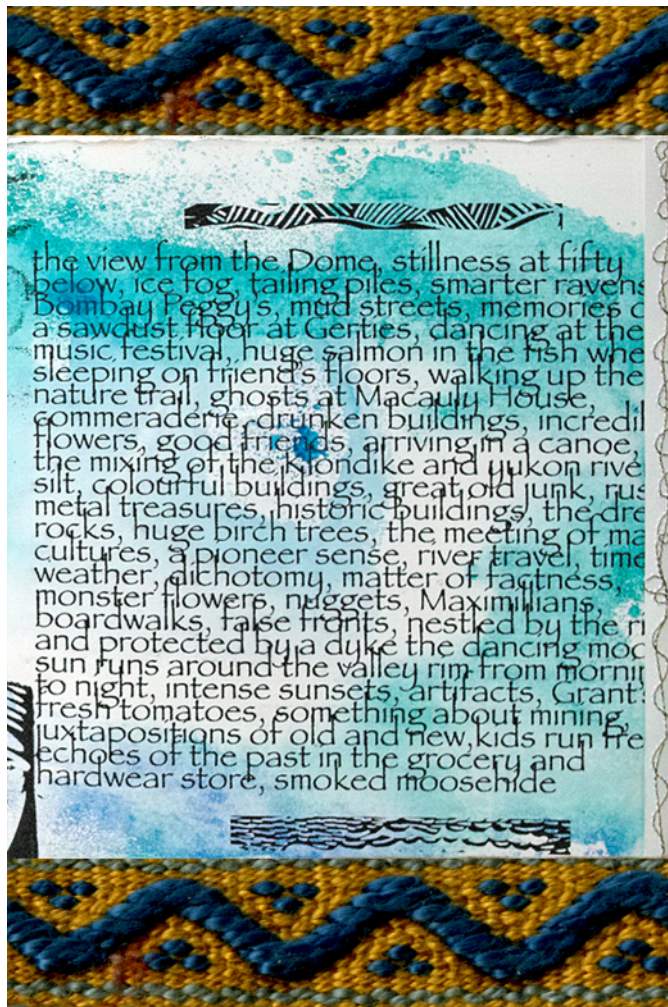 the view from the Dome, stillness at fifty
below, ice fog, tailing piles, smarter ravens
Bombay Peggy's, mud streets, memories o
a sawdust floor at Gerties, dancing at the
music festival, huge salmon in the fish whe
sleeping on friend's floors, walking up the
nature trail, ghosts at Macauly House,
commeraderie, drunken buildings, incredil
flowers, good friends, arriving in a canoe,
the mixing of the Klondike and yukon rive
silt, colourful buildings, great old junk, rus
metal treasures, historic buildings, the dre
rocks, huge birch trees, the meeting of ma
cultures, a pioneer sense, river travel, time
weather, dichotomy, matter of factness,
monster flowers, nuggets, Maximillians,
boardwalks, false fronts, nestled by the ri
and protected by a dyke the dancing moo
sun runs around the valley rim from mornin
to night, intense sunsets, artifacts, Grant's
fresh tomatoes, something about mining,
juxtapositions of old and new,kids run fre
echoes of the past in the grocery and
hardwear store, smoked moosehide